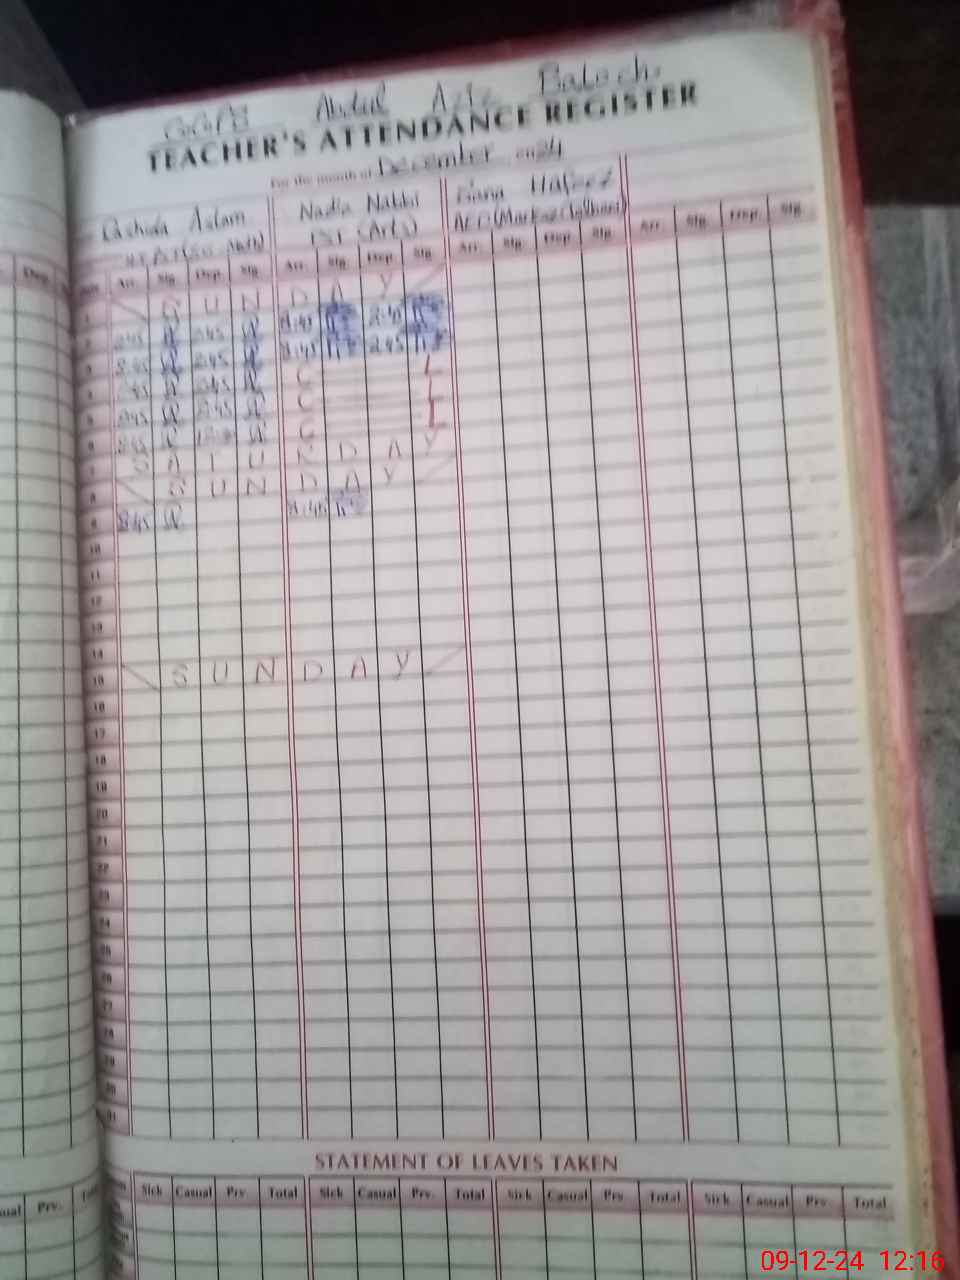 GGPS Abdul Aziz Baloch
TEACHER'S ATTENDANCE REGISTER
For the month of December 2024
Rashida Aslam Nadia Nabhi Hafeez
(Arts) AEO (Markaz
Arr. Sig. Dep. Sig. Arr. Sig. Dep. Sig. Arr. Sig. Dep. Sig. Arr. Sig. Dep. Sig.
1 S U N D A Y
2 8:45 2:45 8:45 2:45
3 8:45 2:45 8:45 2:45
4 8:45 2:45 C L
5 8:45 2:45 C L
6 8:45 C L
7 S A T U R D A Y
8 S U N D A Y
9 8:45 8:45
10
11
12
13
14
15 S U N D A Y
16
17
18
19
20
21
22
23
24
25
26
27
28
29
30
31
STATEMENT OF LEAVES TAKEN
Prv. Sick Casual Prv. Total Sick Casual Prv. Total Sick Casual Prv. Total Sick Casual Prv. Total
09-12-24 12:16